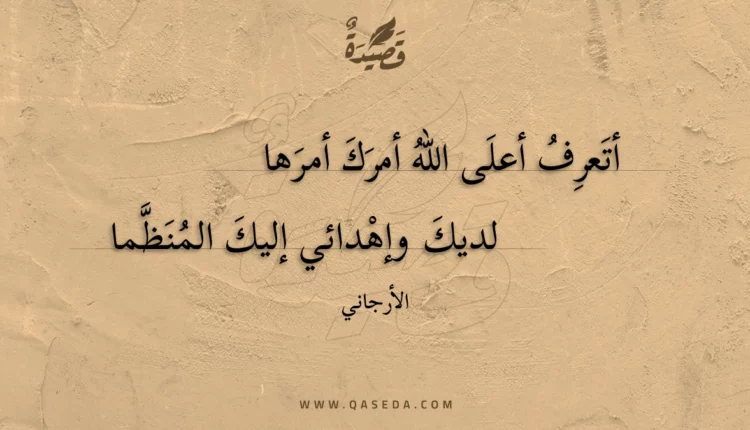 قَصِيدَةٌ
أتَعرِفُ أعلَى اللهُ أمرَكَ أمرَها
لديكَ وإهْدائي إليكَ المُنَظَّما
الأرجاني
WWW.QASEDA.COM